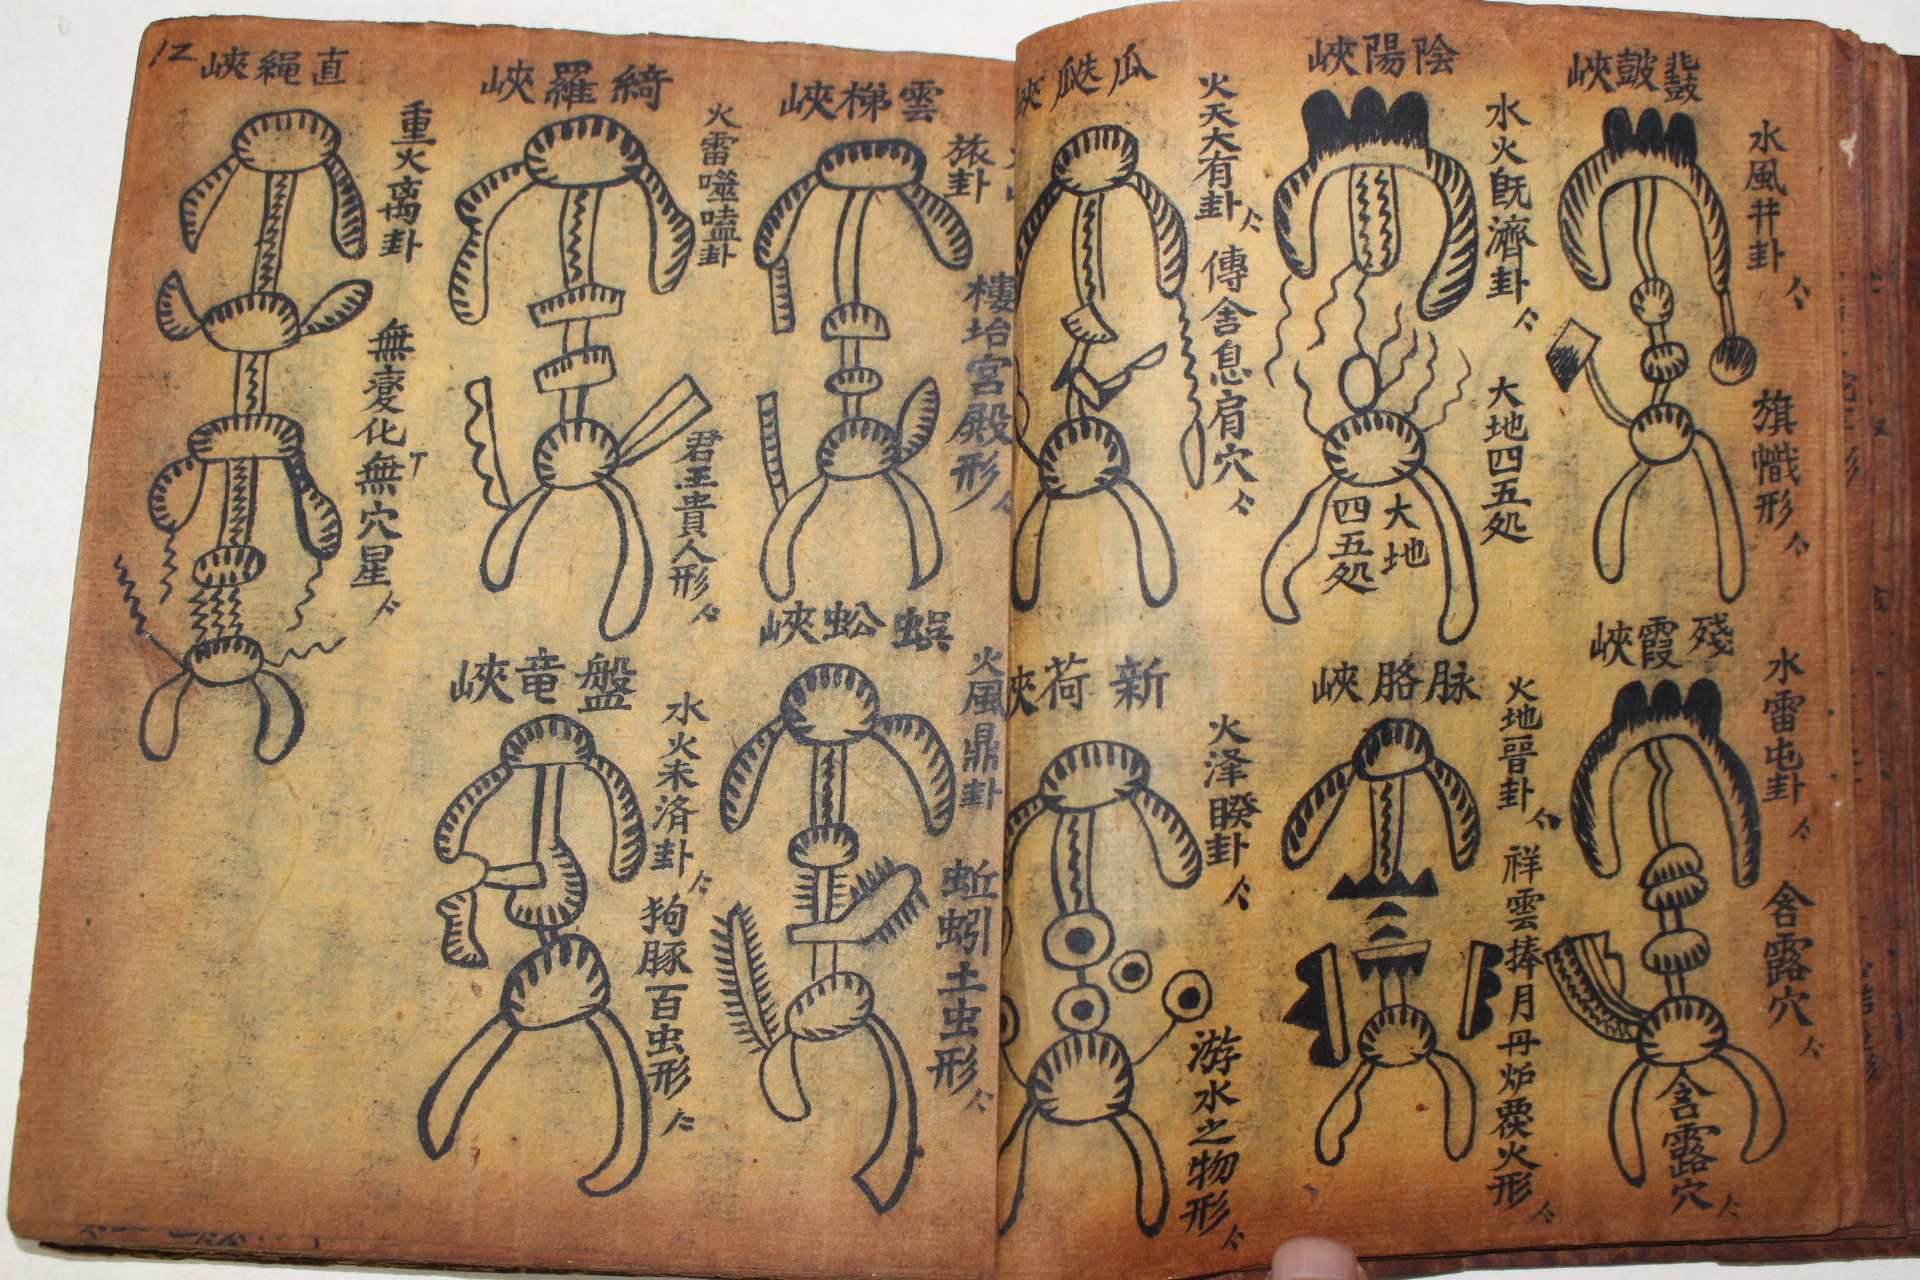 鼓峽
水風井卦
旗幟形
陰陽峽
水火旣濟卦
大地四五処
大地
四五処
瓜瓞峽
火天大有卦
傳舍息肩穴
殘霞峽
水雷屯卦
含露穴
含露穴
脉胳峽
火地晉卦
祥雲捧月丹炉覆火形
新荷峽
火泽睽卦
游水之物形
雲梯峽
旅卦
樓坮宮殿形
綺羅峽
火雷噬嗑卦
君王貴人形
直繩峽
重火离卦
無変化無穴星
12
蜈蚣峽
火風鼎卦
蚯蚓土虫形
盤竜峽
水火未済卦
狗豚百虫形